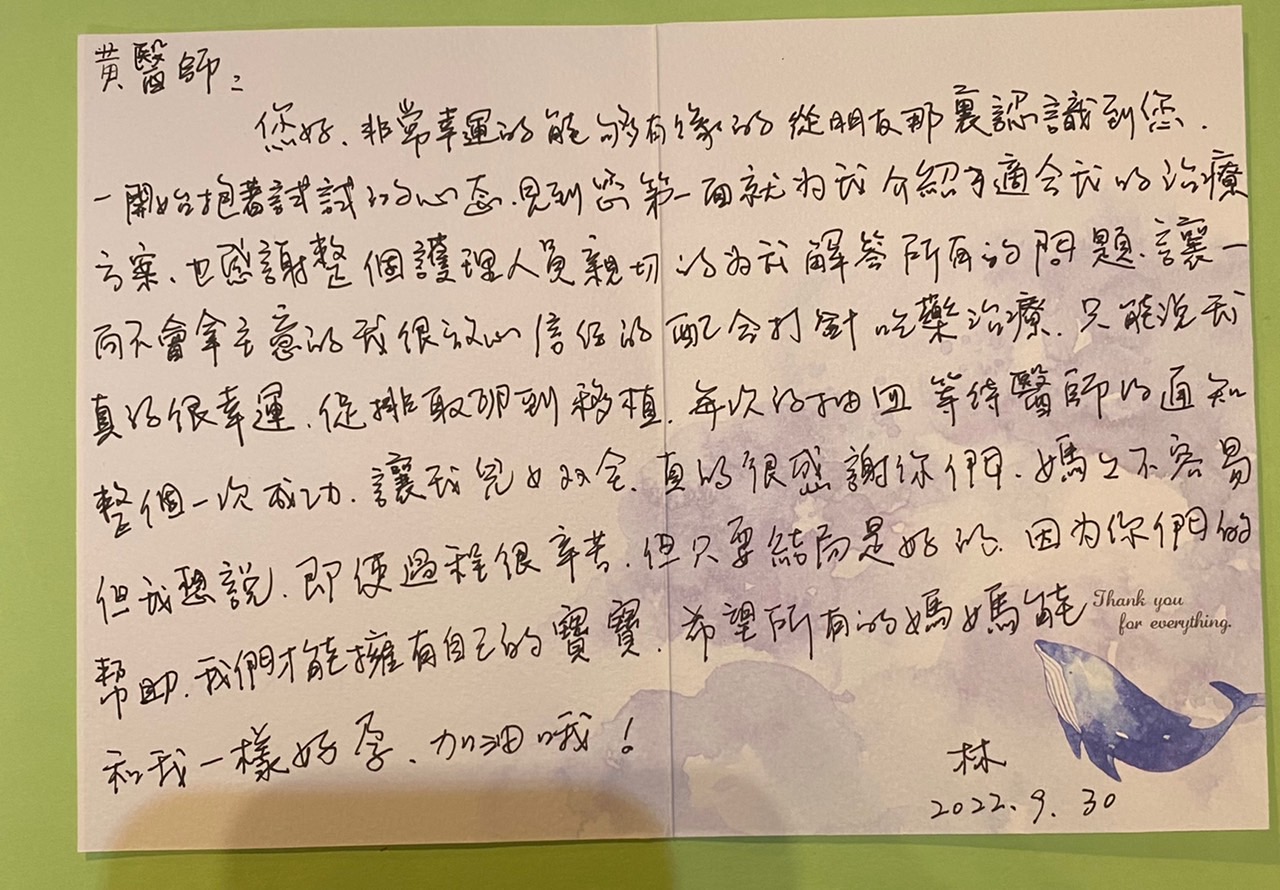 黃醫師:
您好、非常幸運的能夠有緣的從朋友那裏認識到您.
一開始抱著試試的心态.見到您第一面就为我介紹了適合我的治療
方案、也感謝整個護理人員親切的为我解答所有的問題.讓一
向不會拿主意的我很放心信任的配合打針吃藥治療.只能说我
真的很幸運.從排取卵到移植.每次的抽血等待醫師的通知
整個一次成功.讓我兒女双全.真的很感謝你們.媽上不容易
但我想說、即使過程很辛苦.但只要結局是好的.因为你們的
幫助.我們才能擁有自己的寶寶.希望所有的媽媽能
Thank you
for everything.
和我一樣好孕、加油哦!
林
2022.9.30